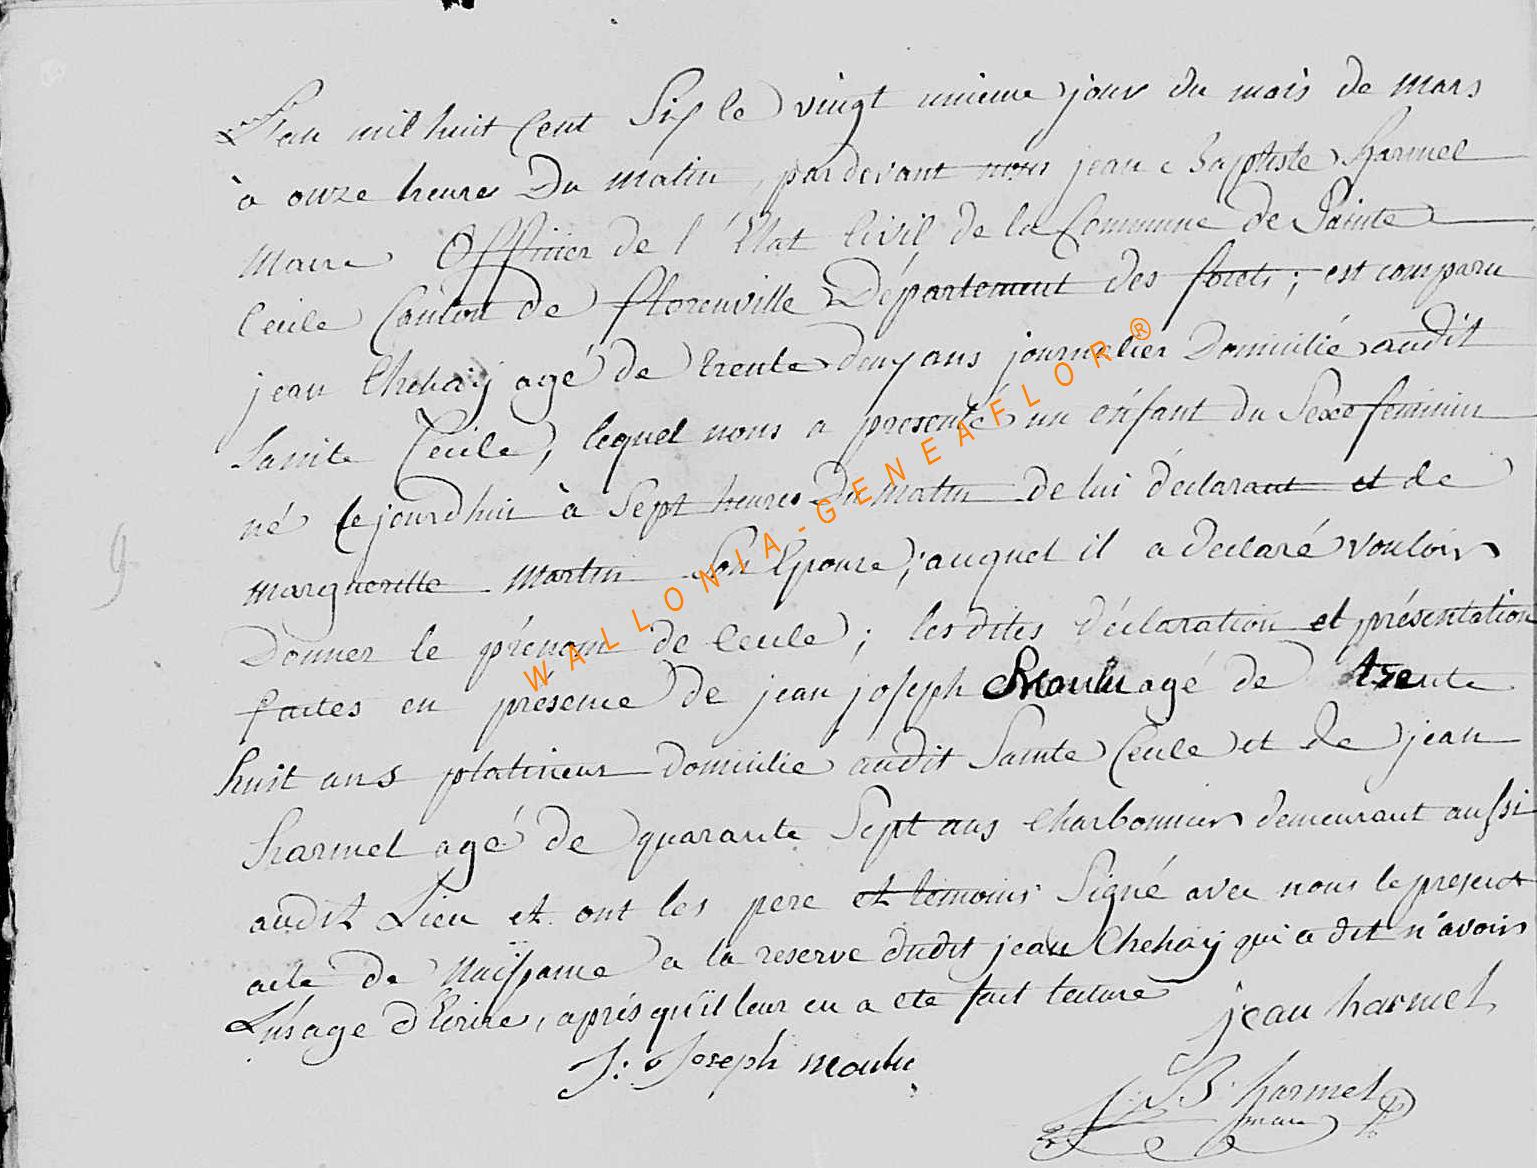 L'an mil huit Cent Six le vingt unieme jour du mois de mars
à onze heures Du matin, pardevant nous jean Baptiste harmel
Maire Officier de l'Etat Civil de la Commune de Sainte
Cecile Canton de florenville Département des forets; est comparu
jean Chehaÿ agé de trente deux ans journelier Domicilié audit
Sainte Cecile, lequel nous a presenté un enfant du Sexe feminin
né cejourdhui à Sept heures du matin de lui déclarant et de
margueritte Martin Son Epouse, auquel il a declaré vouloir
Donner le prénom de Cecile; les dites déclaration et présentation
faites en présence de jean joseph agé de trente
huit ans platineur domicilié audit Sainte Cecile et de jean
harmel agé de quarante Sept ans Charbonnier demeurant aussi
audit Lieu et ont les pere et temoins Signé avec nous le present
acte de Naissance a la reserve dudit jean Chehaÿ qui a dit n'avoir
L'usage d'Ecrire, après qu'il leur en a eté fait lecture
jean harmel
J: Joseph
J. B. harmel
maire
WALLONIA-GENEAFLOR®
9